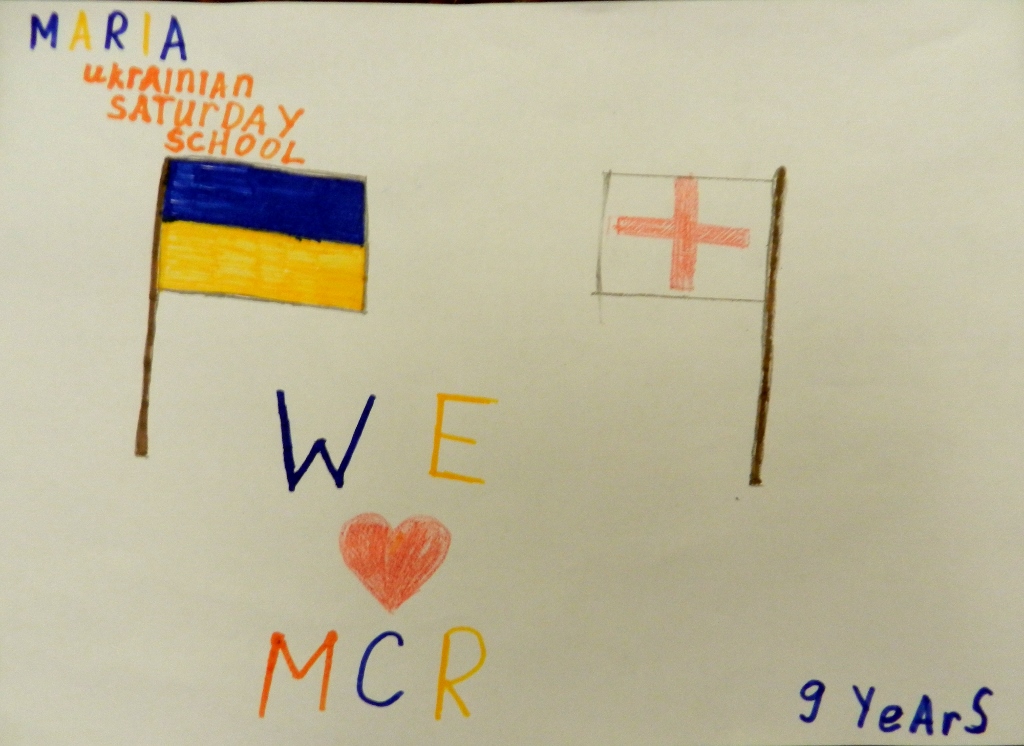 MARIA
ukrAiniAn
SATurDAY
SCHOOL
WE
MCR
9 YeArS